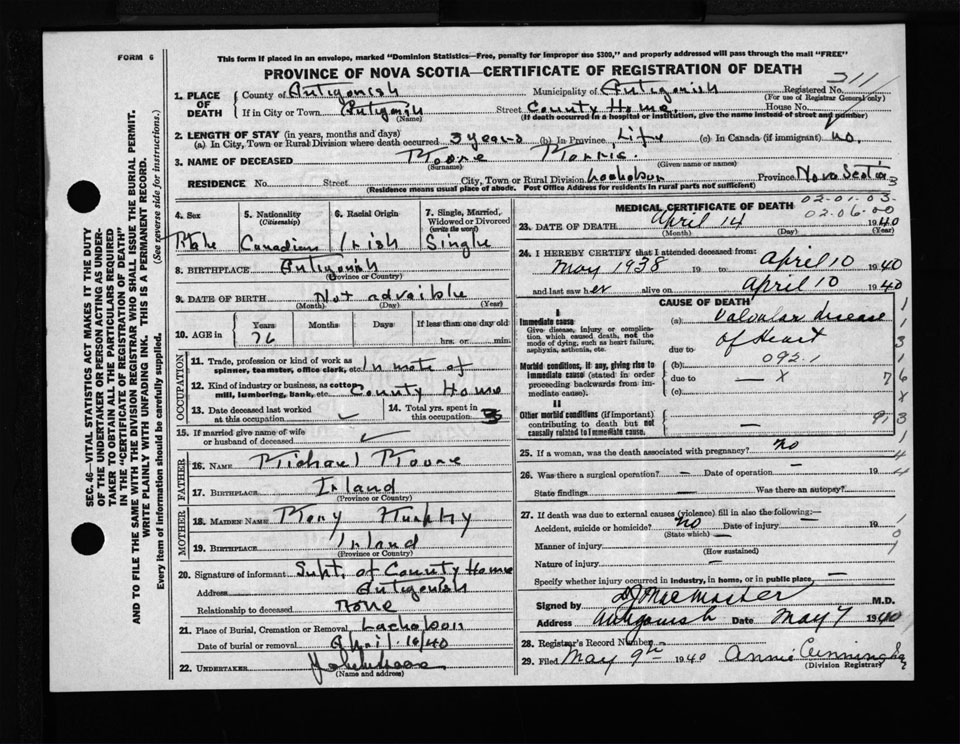 FORM 6
This form if placed in an envelope, marked "Dominion Statistics—Free, penalty for improper use $300," and properly addressed will pass through the mail "FREE"
PROVINCE OF NOVA SCOTIA—CERTIFICATE OF REGISTRATION OF DEATH
311
1. PLACE OF DEATH
County of Antigonish Municipality of Antigonish Registered No.
(For use of Registrar General only)
If in City or Town Antigonish Street County Home House No.
(Name) (If death occurred in a hospital or institution, give the name instead of street and number)
2. LENGTH OF STAY (in years, months and days)
(a) In City, Town or Rural Division where death occurred 3 years (b) In Province Life (c) In Canada (if immigrant) no.
3. NAME OF DECEASED
(Surname) (Given name or names)
RESIDENCE No. Street City, Town or Rural Division Province Nova Scotia 3
(Residence means usual place of abode. Post Office Address for residents in rural parts not sufficient)
4. Sex
5. Nationality
(Citizenship)
Canadian
6. Racial Origin
Irish
7. Single, Married, Widowed or Divorced
(write the word)
Single
8. BIRTHPLACE Antigonish
(Province or Country)
9. DATE OF BIRTH Not
(Month) (Day) (Year)
10. AGE in Years Months Days If less than one day old
76 hrs. or min.
OCCUPATION
11. Trade, profession or kind of work as spinner, teamster, office clerk, etc. In mate of
12. Kind of industry or business, as cotton mill, lumbering, bank, etc. County Home
13. Date deceased last worked at this occupation ✓
14. Total yrs. spent in this occupation 3
15. If married give name of wife or husband of deceased ✓
FATHER
16. NAME Michael
17. BIRTHPLACE Irland
(Province or Country)
MOTHER
18. MAIDEN NAME
19. BIRTHPLACE Irland
(Province or Country)
20. Signature of informant Supt. of County Home
Address Antigonish
Relationship to deceased None
21. Place of Burial, Cremation or Removal
Date of burial or removal April 16/40
22. UNDERTAKER
(Name and address)
MEDICAL CERTIFICATE OF DEATH
02-01.03.
02.06.00
23. DATE OF DEATH April 14 1940
(Month) (Day) (Year)
24. I HEREBY CERTIFY that I attended deceased from:
May 1938 19 to April 10 1940
and last saw her alive on April 10 1940
CAUSE OF DEATH
I
Immediate cause
Give disease, injury or complication which caused death, not the mode of dying, such as heart failure, asphyxia, asthenia, etc.
(a) Valvular disease
due to of Heart
Morbid conditions, if any, giving rise to immediate cause (stated in order proceeding backwards from immediate cause).
(b) 092.1
due to — x
(c)
II
Other morbid conditions (if important) contributing to death but not causally related to immediate cause.
—
25. If a woman, was the death associated with pregnancy? no
26. Was there a surgical operation? — Date of operation — 19
State findings — Was there an autopsy?
27. If death was due to external causes (violence) fill in also the following:—
Accident, suicide or homicide? no Date of injury — 19
(State which)
Manner of injury
(How sustained)
Nature of injury —
Specify whether injury occurred in industry, in home, or in public place, —
Signed by MacMaster M.D.
Address Antigonish Date May 7 1940
28. Registrar's Record Number
29. Filed May 9th 1940 Annie
(Division Registrar)
SEC. 46—VITAL STATISTICS ACT MAKES IT THE DUTY
OF THE UNDERTAKER OR PERSON ACTING AS UNDER-
TAKER TO OBTAIN ALL THE PARTICULARS REQUIRED
IN THE "CERTIFICATE OF REGISTRATION OF DEATH"
AND TO FILE THE SAME WITH THE DIVISION REGISTRAR WHO SHALL ISSUE THE BURIAL PERMIT.
WRITE PLAINLY WITH UNFADING INK. THIS IS A PERMANENT RECORD.
Every item of information should be carefully supplied. (See reverse side for instructions.)